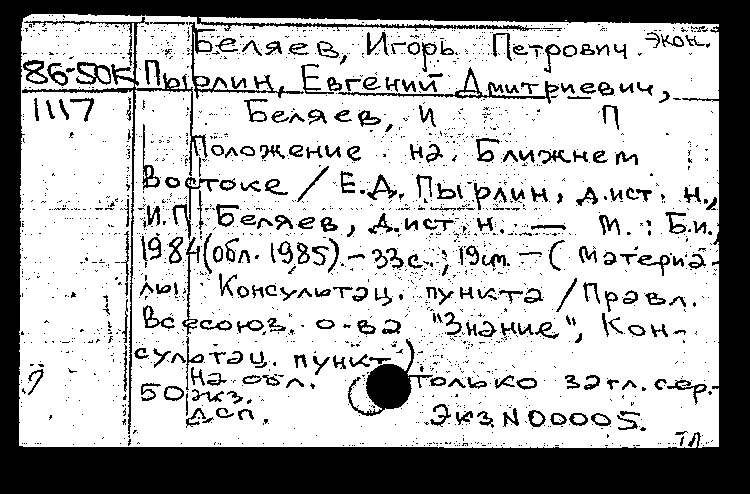 Беляев, Игорь Петрович. экон.
86-50К Пырлин, Евгений Дмитриевич,
1117 Беляев, И П
Положение на Ближнем
Востоке / Е.Д. Пырлин, д.ист. н.,
И.П. Беляев, д.ист. н. — М. : Б.и.,
1984 (обл. 1985). - 33 с. ; 19 см. - ( Материа-
лы Консультац. пункта / Правл.
Всесоюз. о-ва "Знание", Кон-
сультац. пункт)
На обл. только загл. сер.-
50 экз.
ДСП. Экз. N 00005.